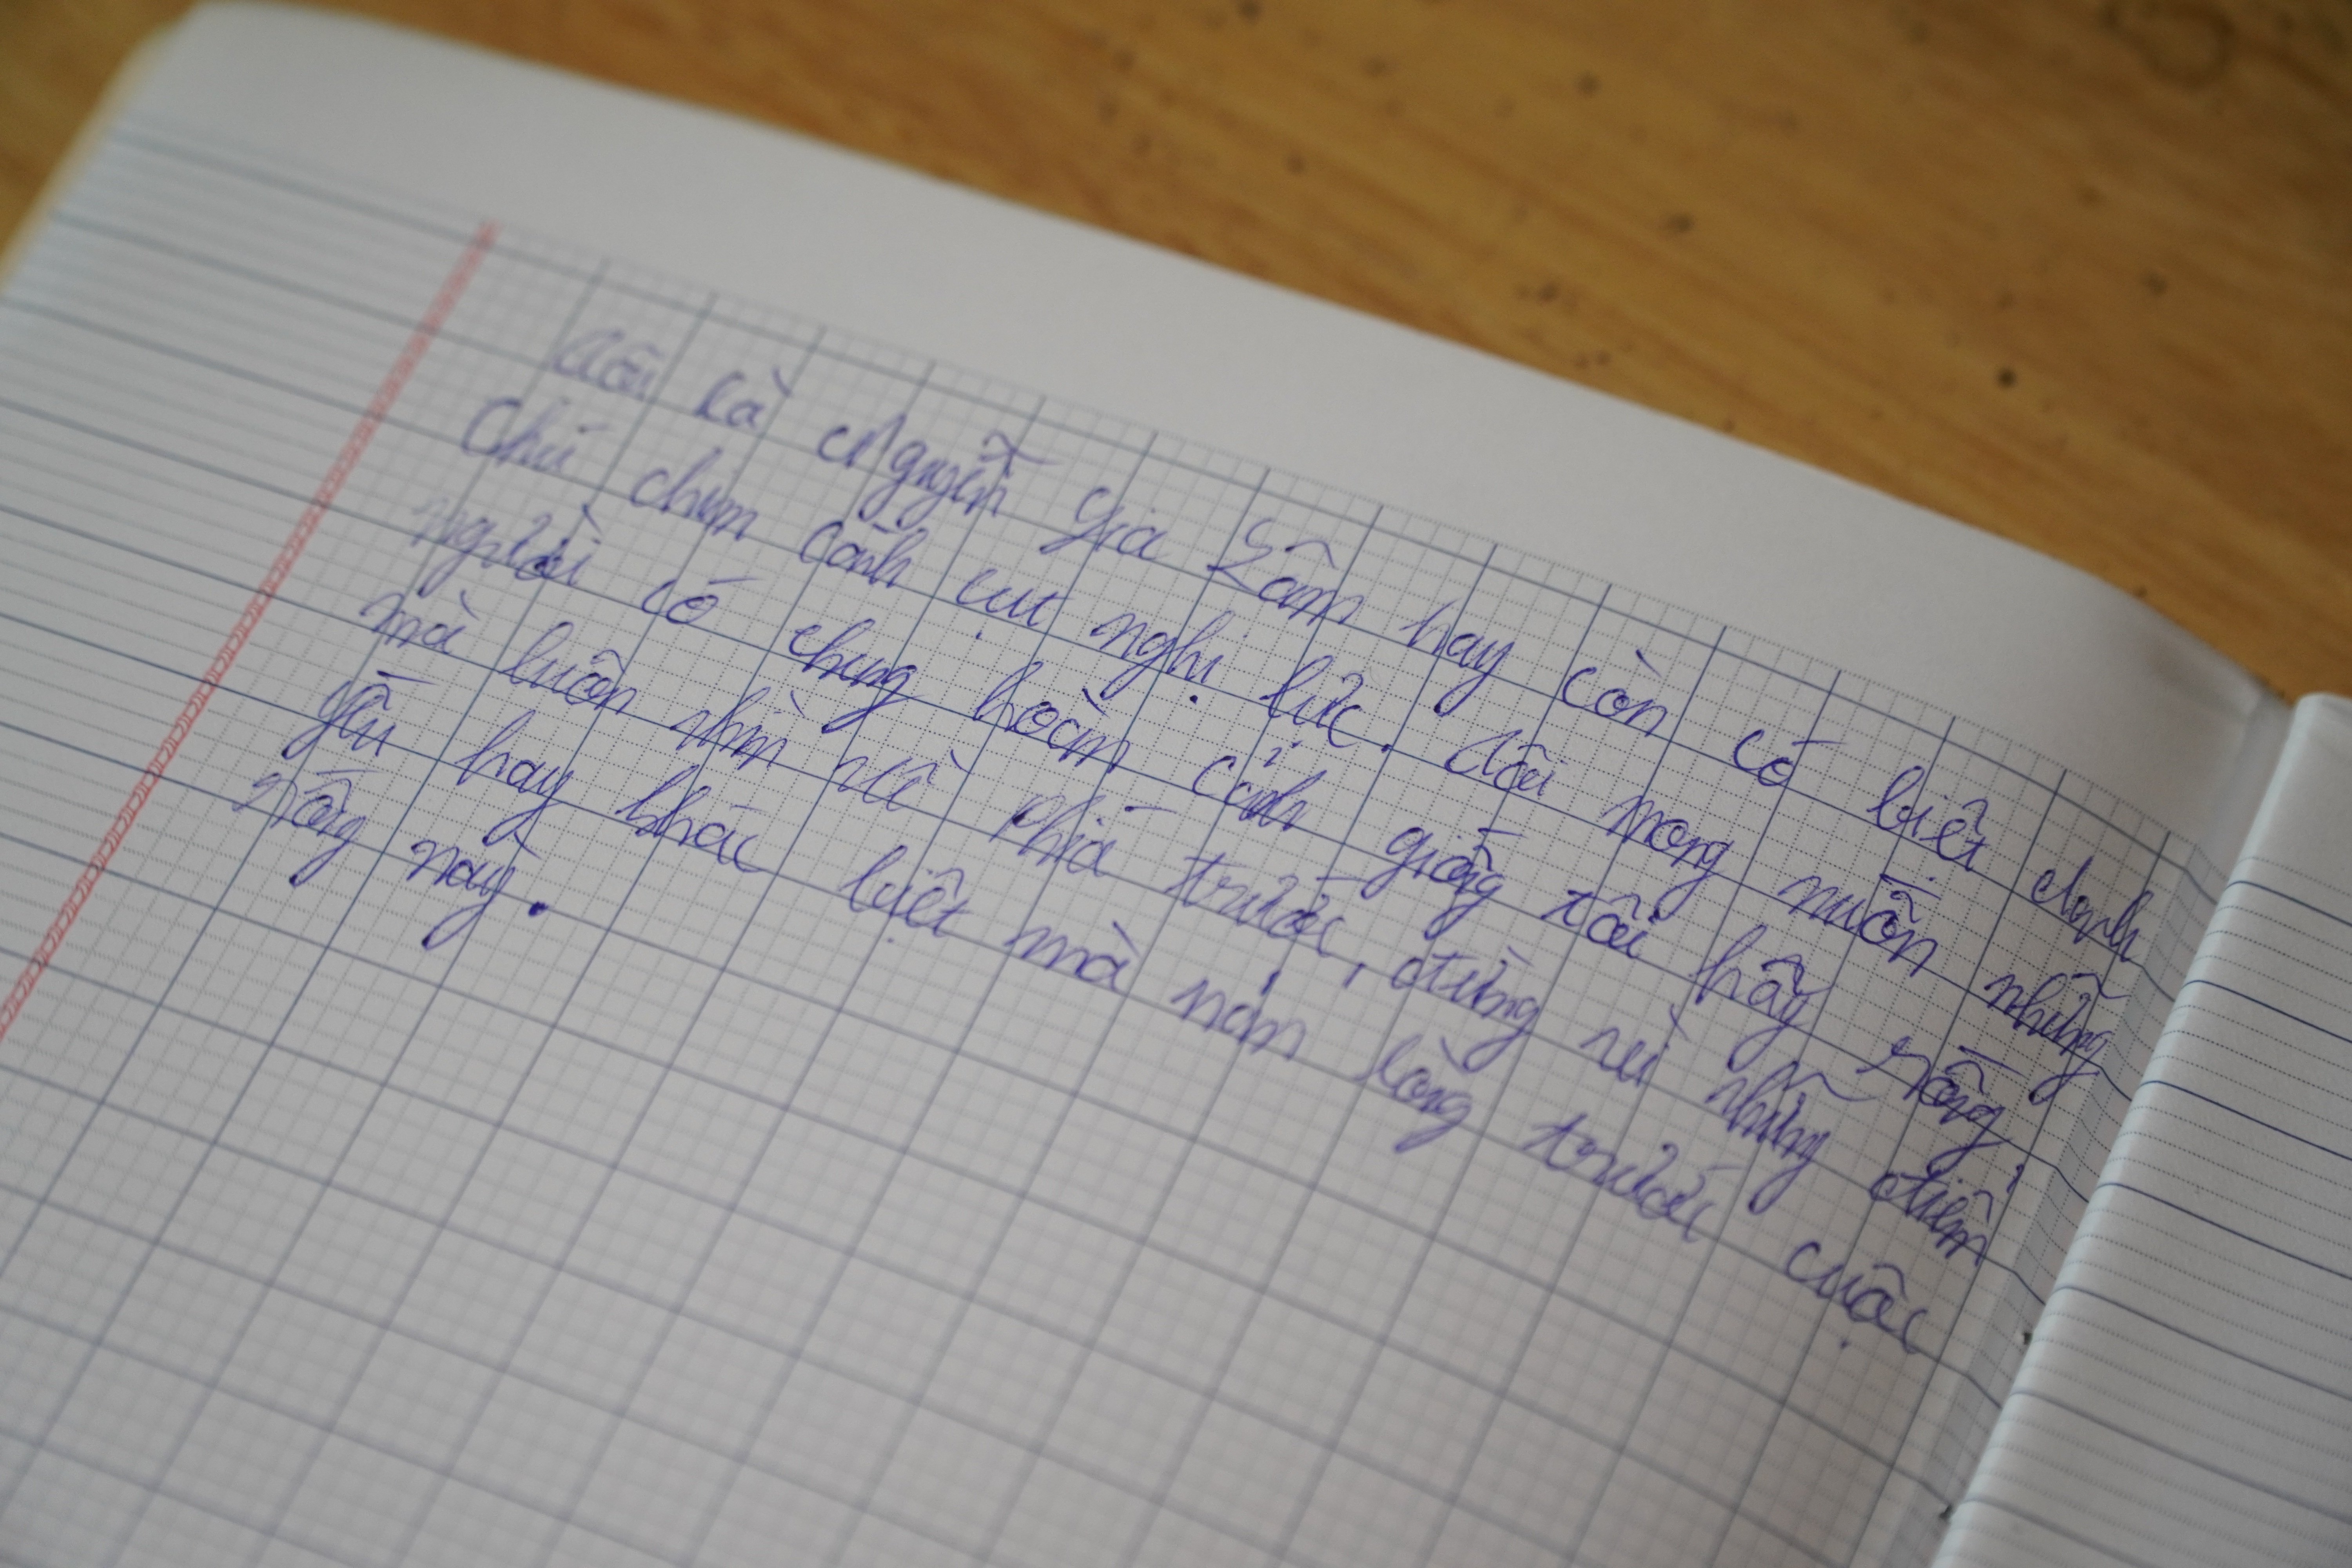 Tôi là Nguyễn Gia Lâm hay còn có biệt danh
Chú chim cánh cụt nghị lực. Tôi mong muốn những
người có chung hoàn cảnh giống tôi hãy sống
mà luôn nhìn về phía trước, đừng vì những điểm
yếu hay khác biệt mà nản lòng trước cuộc
sống này.